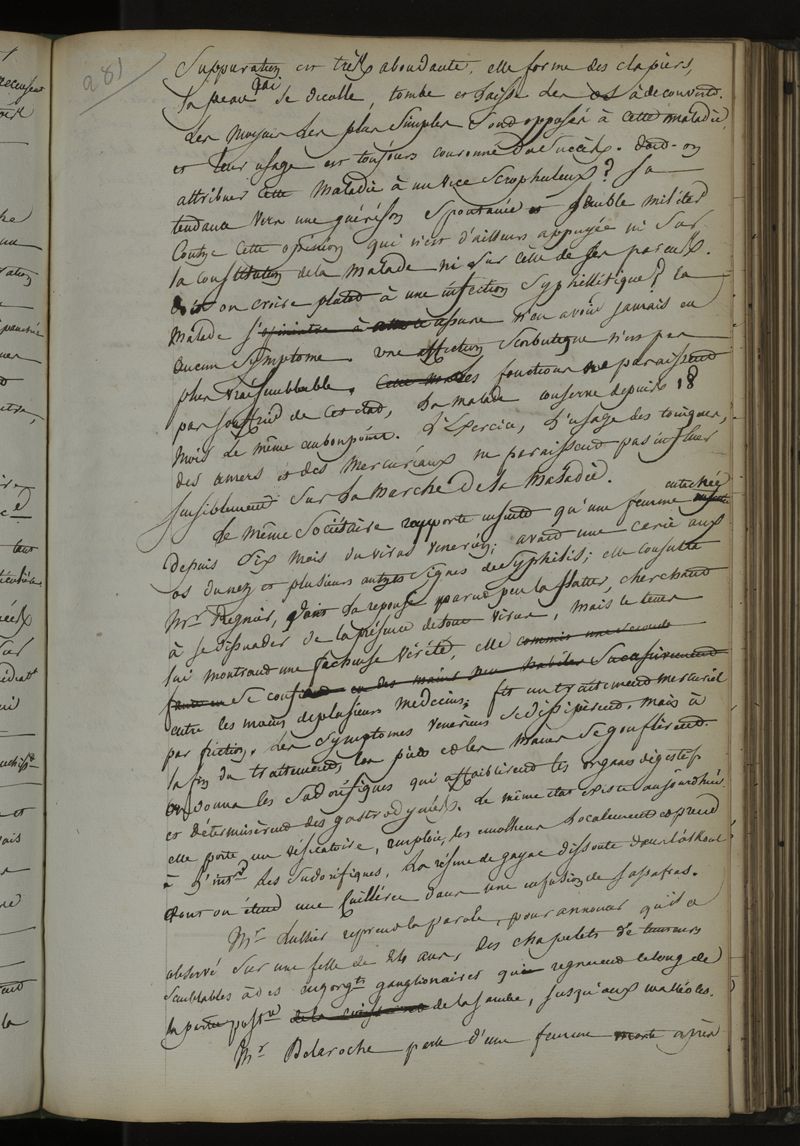 281
Suppuration est très abondante, elle forme des clapiers,
la peau qui se décolle, tombe et laisse les os à découvert.
Les moyens les plus simples sont opposés à cette maladie,
et leur usage est toujours couronné du succès. doit-on
attribuer cette maladie à un vice scrophuleux? Sa
tendance vers une guérison spontanée semble militer
contre cette opinion qui n'est d'ailleurs appuyée ni sur
la constitution de la malade ni sur celle de ses parents.
doit on croire plutôt à une infection syphillitique? la
malade s'opiniatre à assure n'en avoir jamais eu
aucun symptome. une affection scorbutique n'est pas
plus vraisemblable. Cette malade fonctions ne paraissent
pas souffrir de cet état, la malade conserve depuis 18
mois le même embonpoint. L'exercice, l'usage des toniques,
des amers et des mercuriaux ne paraissent pas influer
sensiblement sur la marche de la maladie.
Le même Sociétaire rapporte ensuite qu'une femme entichée
depuis dix mois du virus vénérien; avait une carie aux
os du nez et plusieurs autres signes de syphilis; elle consulta
Mr. Regnier, dont la réponse parut peu la flatter, cherchant
à se dissuader de la présence de tout virus, mais le tems
lui montrant une fâcheuse vérité, elle commis une seconde
faute en se confiant en des mains peu habiles successivement
entre les mains de plusieurs médecins, fit un traitement mercuriel
par friction. Les symptomes vénériens se dissipèrent. mais à
la fin du traitement, les pieds et les mains se gonflèrent.
on donna les sudorifiques qui affaiblirent les organes digestifs
et déterminèrent des gastrodynies. Le même état existe aujourd'hui.
elle porte un vésicatoire, emploie les émolliens localement et prend
à l'intr. les sudorifiques. la résine de gayac dissoute dans l'alkool
dont on étend une cuillérée dans une infusion de sassafras.
Mr. Lullier reprend la parole, pour annoncer qu'il a
observé sur une fille de 24 ans, des chapelets de tumeurs
semblables à des engorgts ganglionaires qui regnaient le long de
la partie postre de la jambe, jusqu'aux malléoles.
Mr. Delaroche parle d'une femme morte après